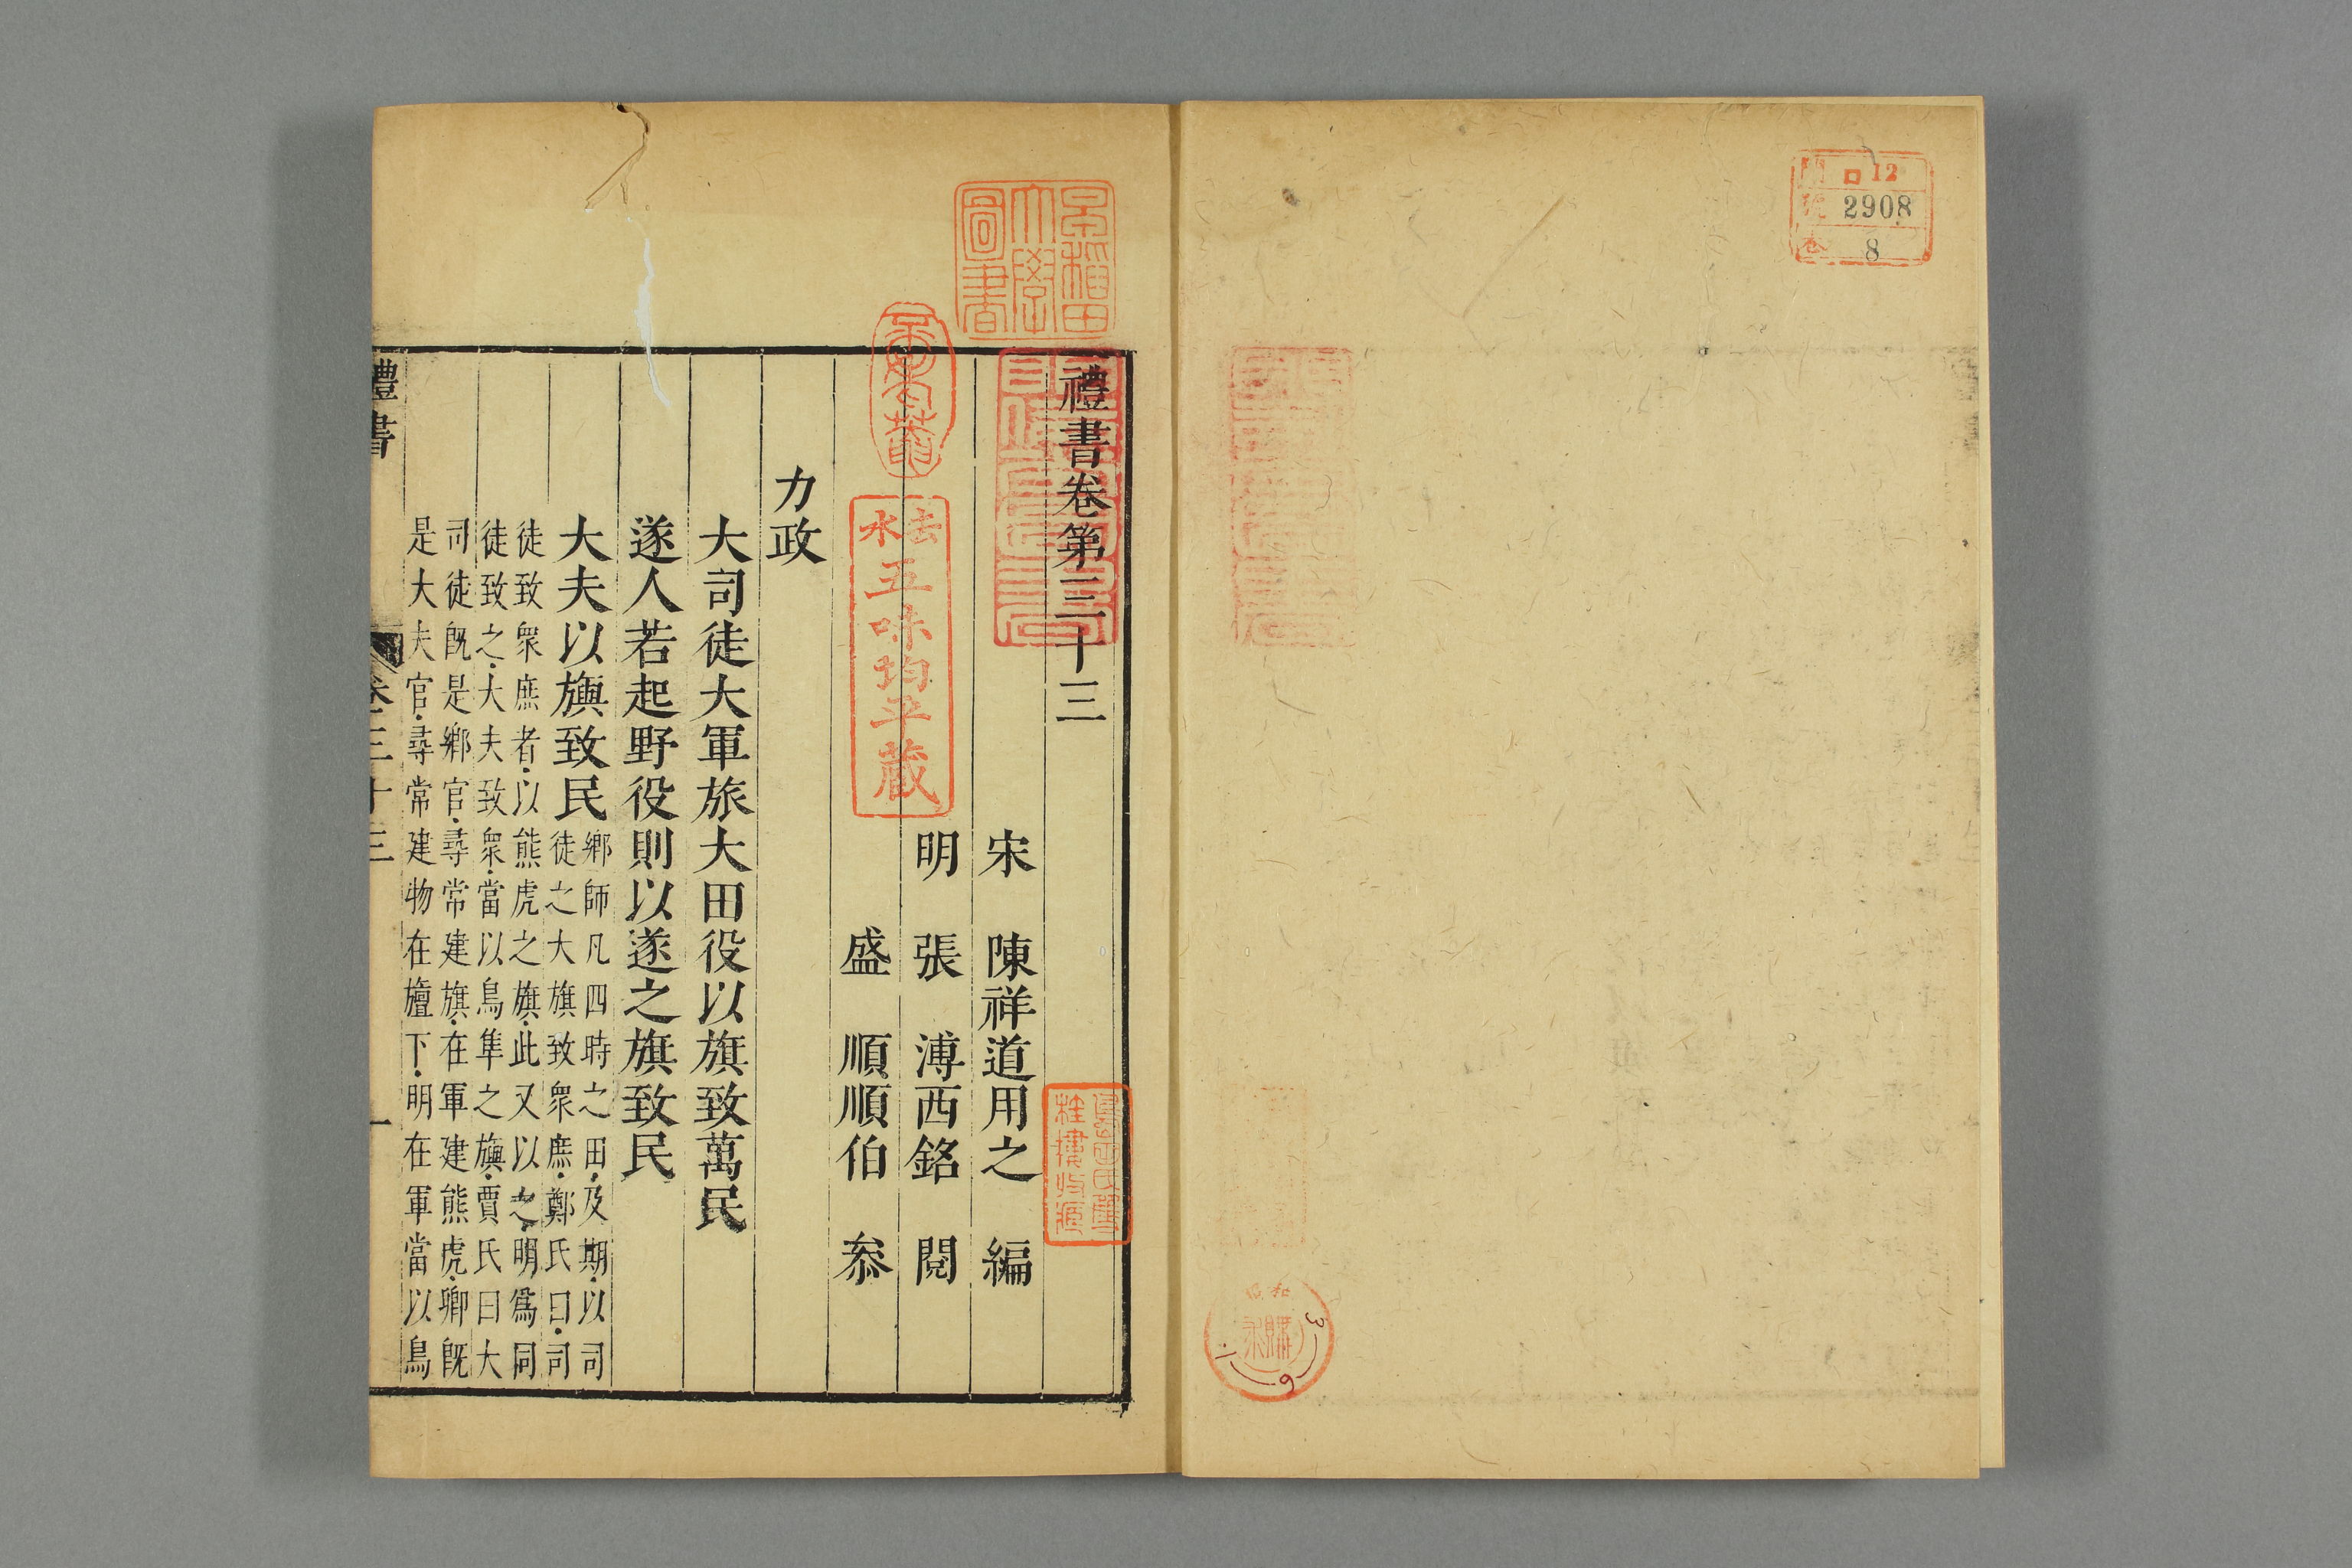 門 ロ12
號 2908
卷 8
早稲田大學圖書
禮書卷第三十三
宋 陳祥道用之 編
明 張 溥西銘 閱
盛 順順伯 叅
去水
五味均平藏
力政
大司徒大軍旅大田役以旗致萬民
遂人若起野役則以遂之旗致民
大夫以旟致民
鄉師凡四時之田、及期、以司
徒之大旗致衆庶、鄭氏曰、司
徒致衆庶者、以熊虎之旗、此又以之、明爲同
徒致之、大夫致衆、當以鳥隼之旟、賈氏曰大
司徒既是鄉官、尋常建旗、在軍建熊虎、卿既
是大夫官、尋常建物在旜下、明在軍當以鳥
禮書
卷三十三
一